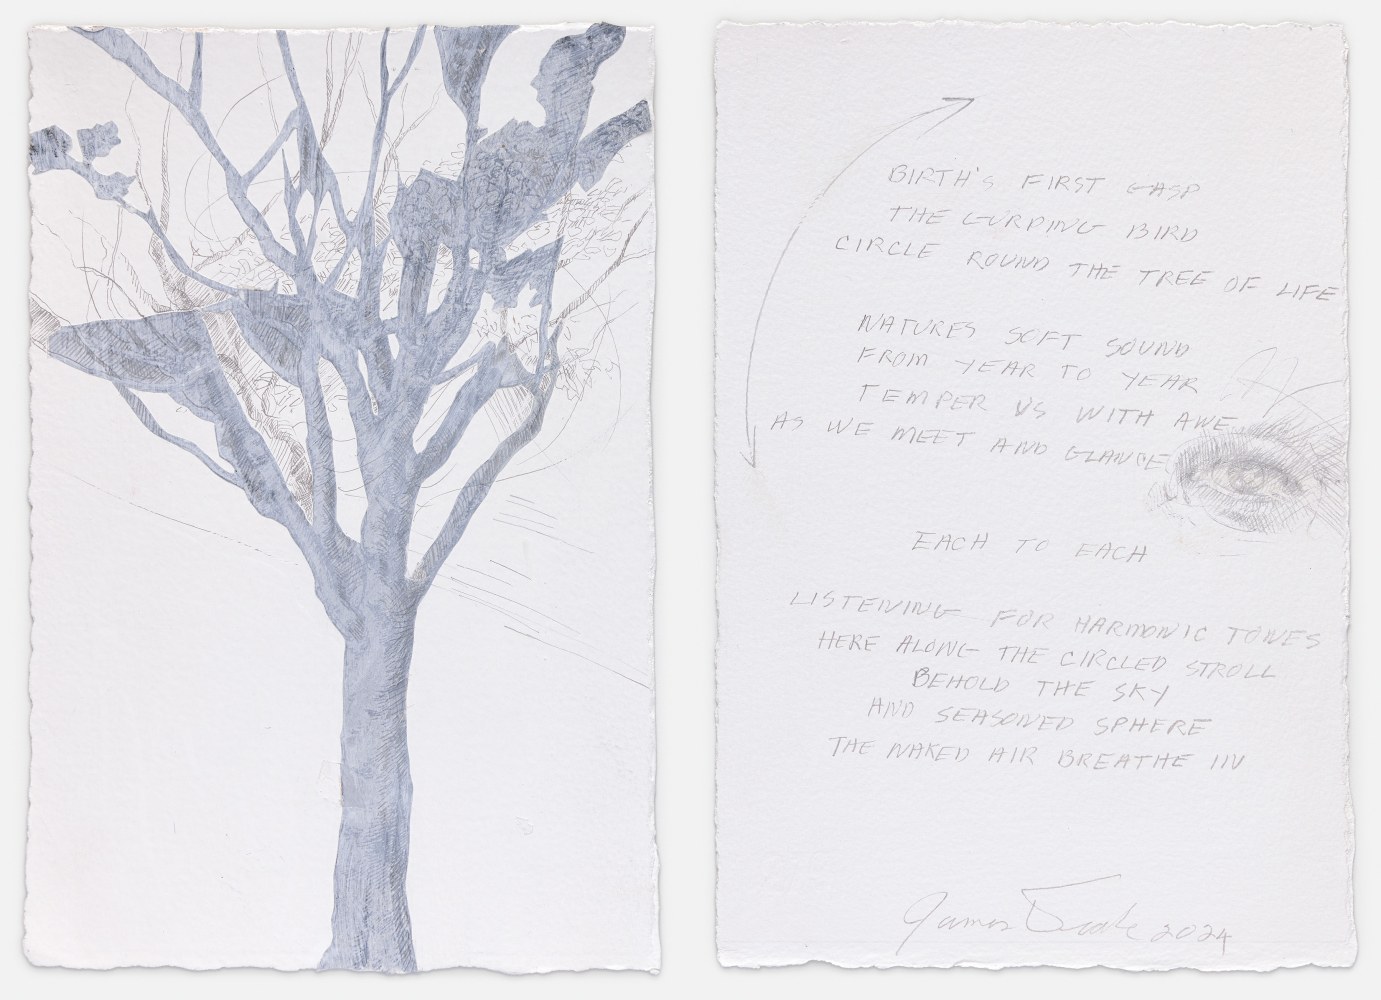 BIRTH'S FIRST GASP
THE GURPING BIRD
CIRCLE ROUND THE TREE OF LIFE
NATURES SOFT SOUND
FROM YEAR TO YEAR
TEMPER US WITH AWE
AS WE MEET AND GLANCE
EACH TO EACH
LISTENING FOR HARMONIC TONES
HERE ALONG THE CIRCLED STROLL
BEHOLD THE SKY
AND SEASONED SPHERE
THE NAKED AIR BREATHE IN
James Drake 2024